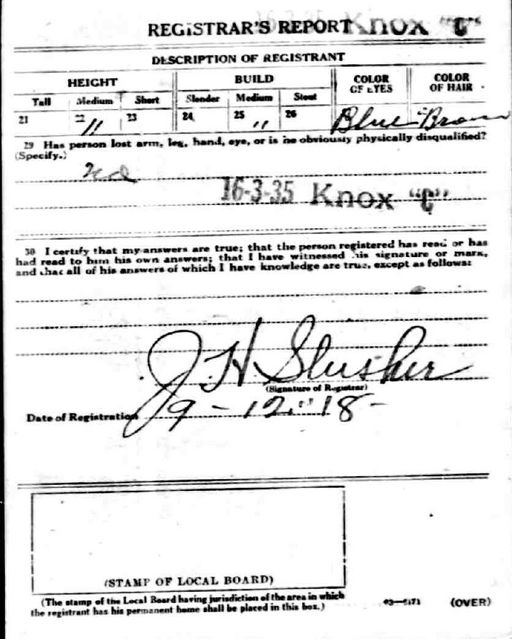 REGISTRAR'S REPORT Knox "C"
DESCRIPTION OF REGISTRANT
HEIGHT BUILD COLOR OF EYES COLOR OF HAIR
Tall Medium Short Slender Medium Stout
21 22 " 23 24 25 " 26 Blue Brown
29 Has person lost arm, leg, hand, eye, or is he obviously physically disqualified?
(Specify.)
No
16-3-35 Knox "C"
30 I certify that my answers are true; that the person registered has read or has
had read to him his own answers; that I have witnessed his signature or mark,
and that all of his answers of which I have knowledge are true, except as follows:
J H Slusher
(Signature of Registrar)
Date of Registration 9-12-18-
(STAMP OF LOCAL BOARD)
(The stamp of the Local Board having jurisdiction of the area in which
the registrant has his permanent home shall be placed in this box.)
(OVER)